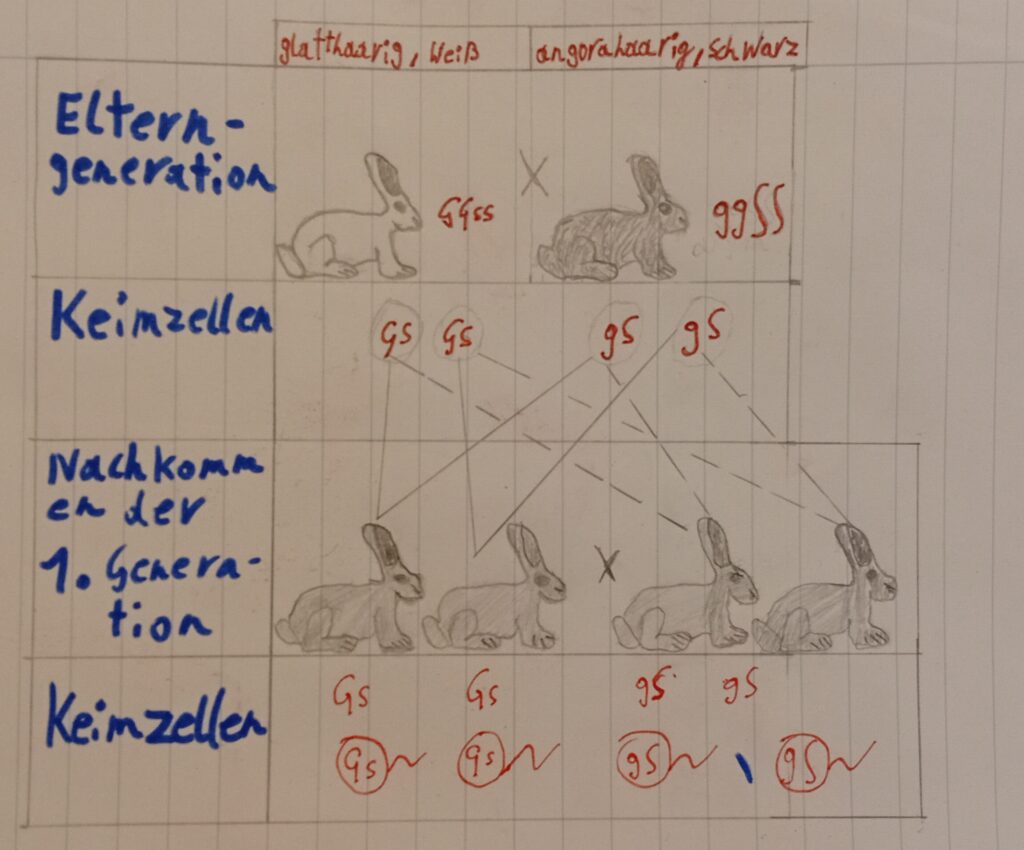 glatthaarig, weiß
angorahaarig, schwarz
Eltern-
generation
X
GGss
ggSS
Keimzellen
Gs
Gs
gS
gS
Nachkomm
en der
1. Genera-
tion
X
Keimzellen
Gs
Gs
gS
gS
Gs
Gs
gS
gS